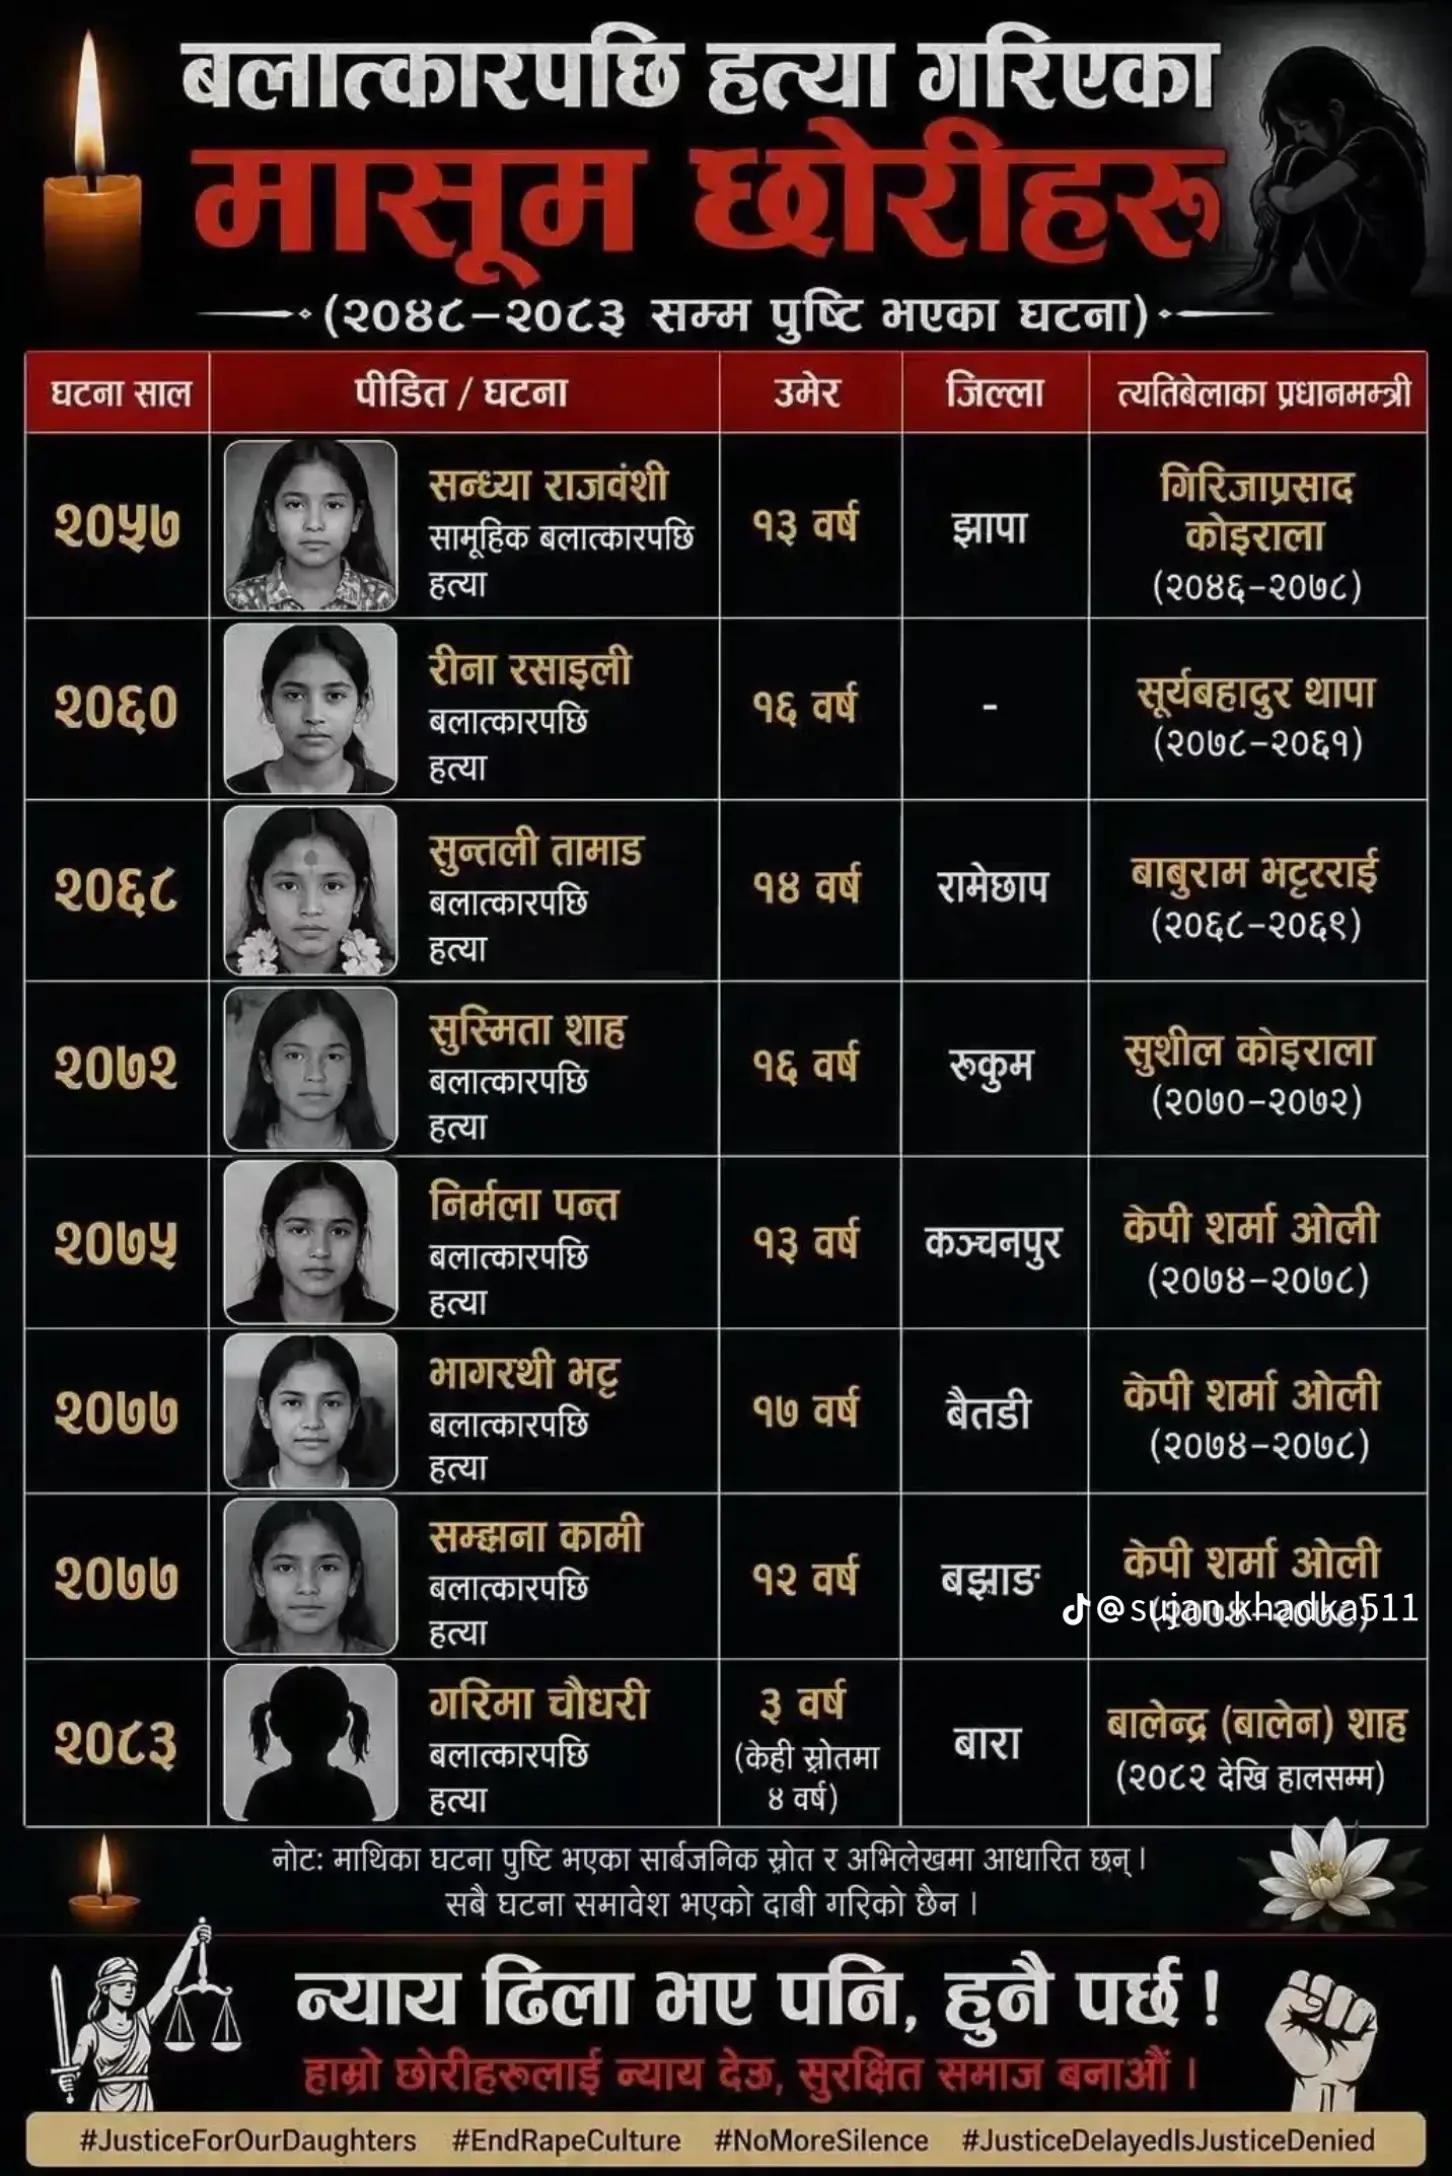 बलात्कारपछि हत्या गरिएका
मासूम छोरीहरू
(२०४८–२०८३ सम्म पुष्टि भएका घटना)
घटना साल
पीडित / घटना
उमेर
जिल्ला
त्यतिबेलाका प्रधानमम्त्री
२०५७
सन्ध्या राजवंशी
सामूहिक बलात्कारपछि
हत्या
१३ वर्ष
झापा
गिरिजाप्रसाद
कोइराला
(२०४६–२०७८)
२०६०
रीना रसाइली
बलात्कारपछि
हत्या
१६ वर्ष
-
सूर्यबहादुर थापा
(२०७८–२०६१)
२०६८
सुन्तली तामाड
बलात्कारपछि
हत्या
१४ वर्ष
रामेछाप
बाबुराम भट्टरराई
(२०६८–२०६९)
२०७२
सुस्मिता शाह
बलात्कारपछि
हत्या
१६ वर्ष
रूकुम
सुशील कोइराला
(२०७०–२०७२)
२०७५
निर्मला पन्त
बलात्कारपछि
हत्या
१३ वर्ष
कञ्चनपुर
केपी शर्मा ओली
(२०७४–२०७८)
२०७७
भागरथी भट्ट
बलात्कारपछि
हत्या
१७ वर्ष
बैतडी
केपी शर्मा ओली
(२०७४–२०७८)
२०७७
सम्झना कामी
बलात्कारपछि
हत्या
१२ वर्ष
बझाङ
केपी शर्मा ओली
@sujan.khadka511
२०८३
गरिमा चौधरी
बलात्कारपछि
हत्या
३ वर्ष
(केही स्रोतमा
४ वर्ष)
बारा
बालेन्द्र (बालेन) शाह
(२०८२ देखि हालसम्म)
नोट: माथिका घटना पुष्टि भएका सार्बजनिक स्रोत र अभिलेखमा आधारित छन् ।
सबै घटना समावेश भएको दाबी गरिको छैन ।
न्याय ढिला भए पनि, हुनै पर्छ !
हाम्रो छोरीहरूलाई न्याय देऊ, सुरक्षित समाज बनाऔं ।
#JusticeForOurDaughters #EndRapeCulture #NoMoreSilence #JusticeDelayedIsJusticeDenied